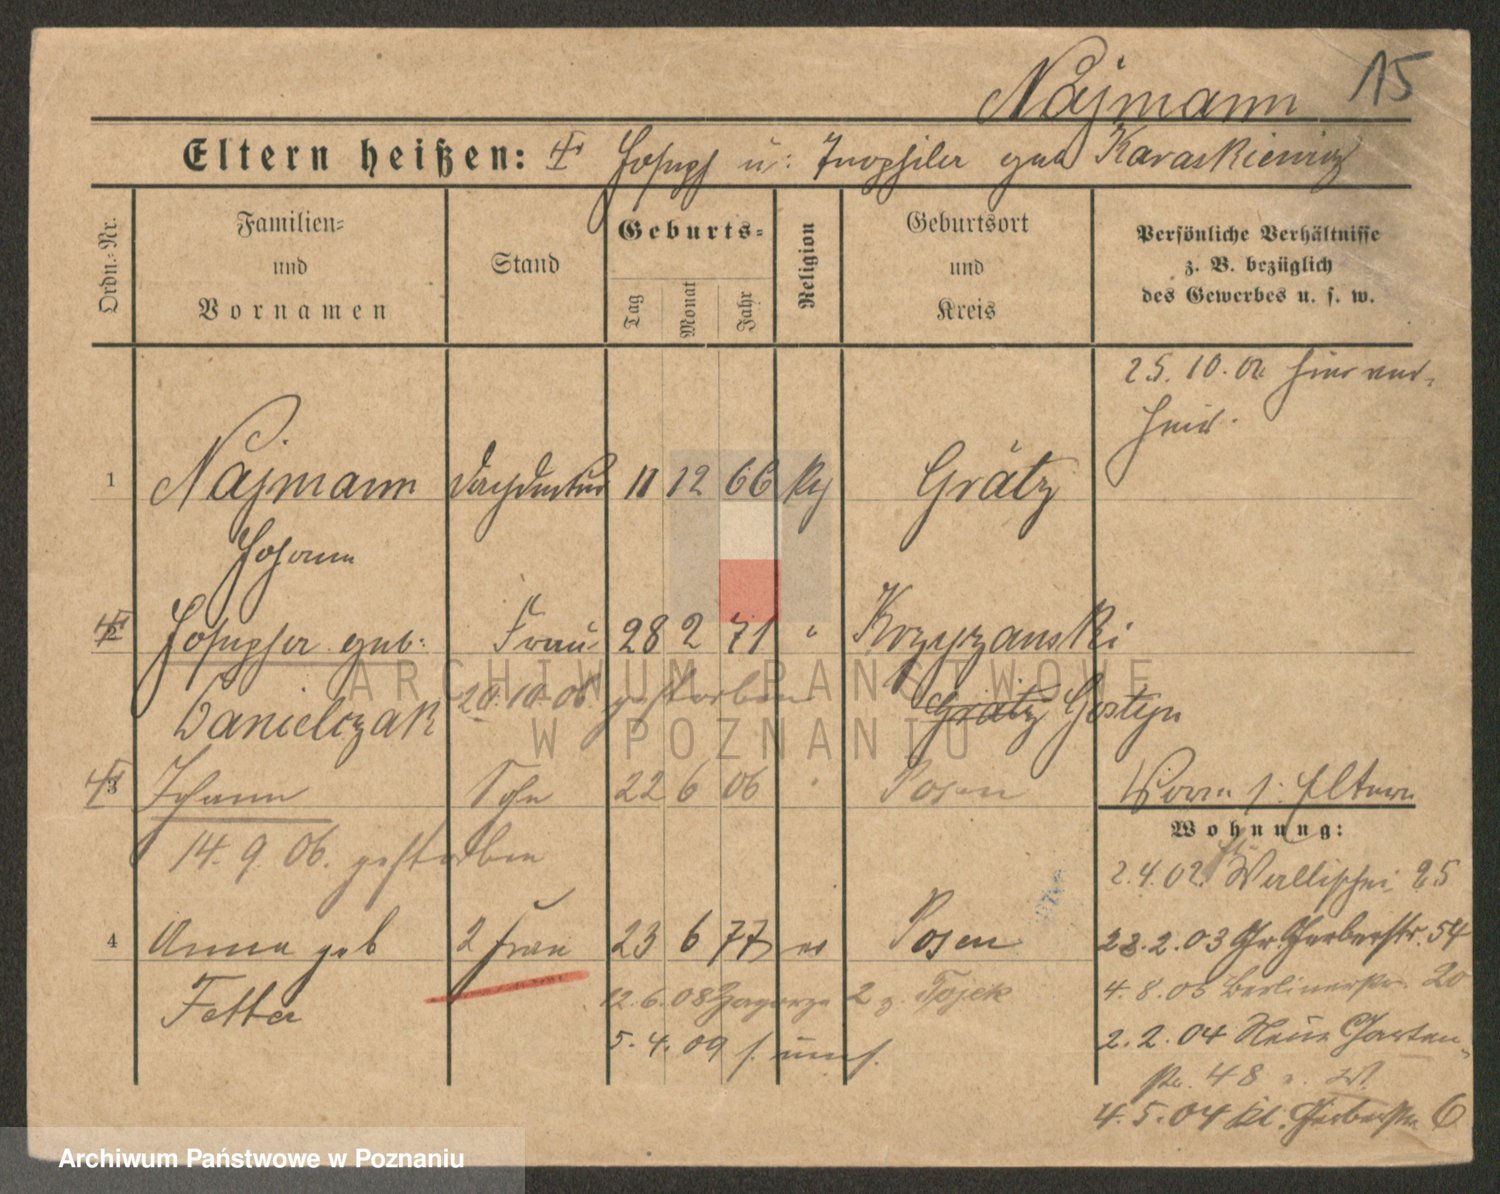 Najmann 15
Eltern heißen: Joseph u: Theophila geb Karaskiewicz
Ordn.-Nr.
Familien-
und
Vornamen
Stand
Geburts-
Tag
Monat
Jahr
Religion
Geburtsort
und
Kreis
Persönliche Verhältnisse
z. B. bezüglich
des Gewerbes u. s. w.
25. 10. 01 hier ver-
heir.
1 Najmann 11 12 66 Grätz
Johann
2 Josepha geb: Frau 28 2 71 " Krzyzanski
20. 10. 06. gestorben Grätz Gostyn
Danielczak
3 Johann Sohn 22 6 06 " Posen
14. 9. 06. gestorben
s. Eltern
Wohnung:
2. 4. 02. Wallischei 25
4 Anna geb 2 Frau 23 6 77 Posen
Fetter
28. 2. 03 Gr. Gerberstr. 54
12. 6. 08 Zagorze 2 z. Tojek
4. 8. 03 Berlinerstr. 20
5. 4. 09 s. um.
2. 2. 04 Neue Garten-
str. 48
4. 5. 04 kl. Gerberstr 6
ARCHIWUM PAŃSTWOWE
W POZNANIU
Archiwum Państwowe w Poznaniu